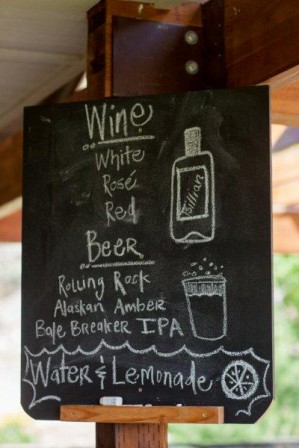 Wine
White
Rosé
Red
Jillian
Beer
Rolling Rock
Alaskan Amber
Bale Breaker IPA
Water & Lemonade